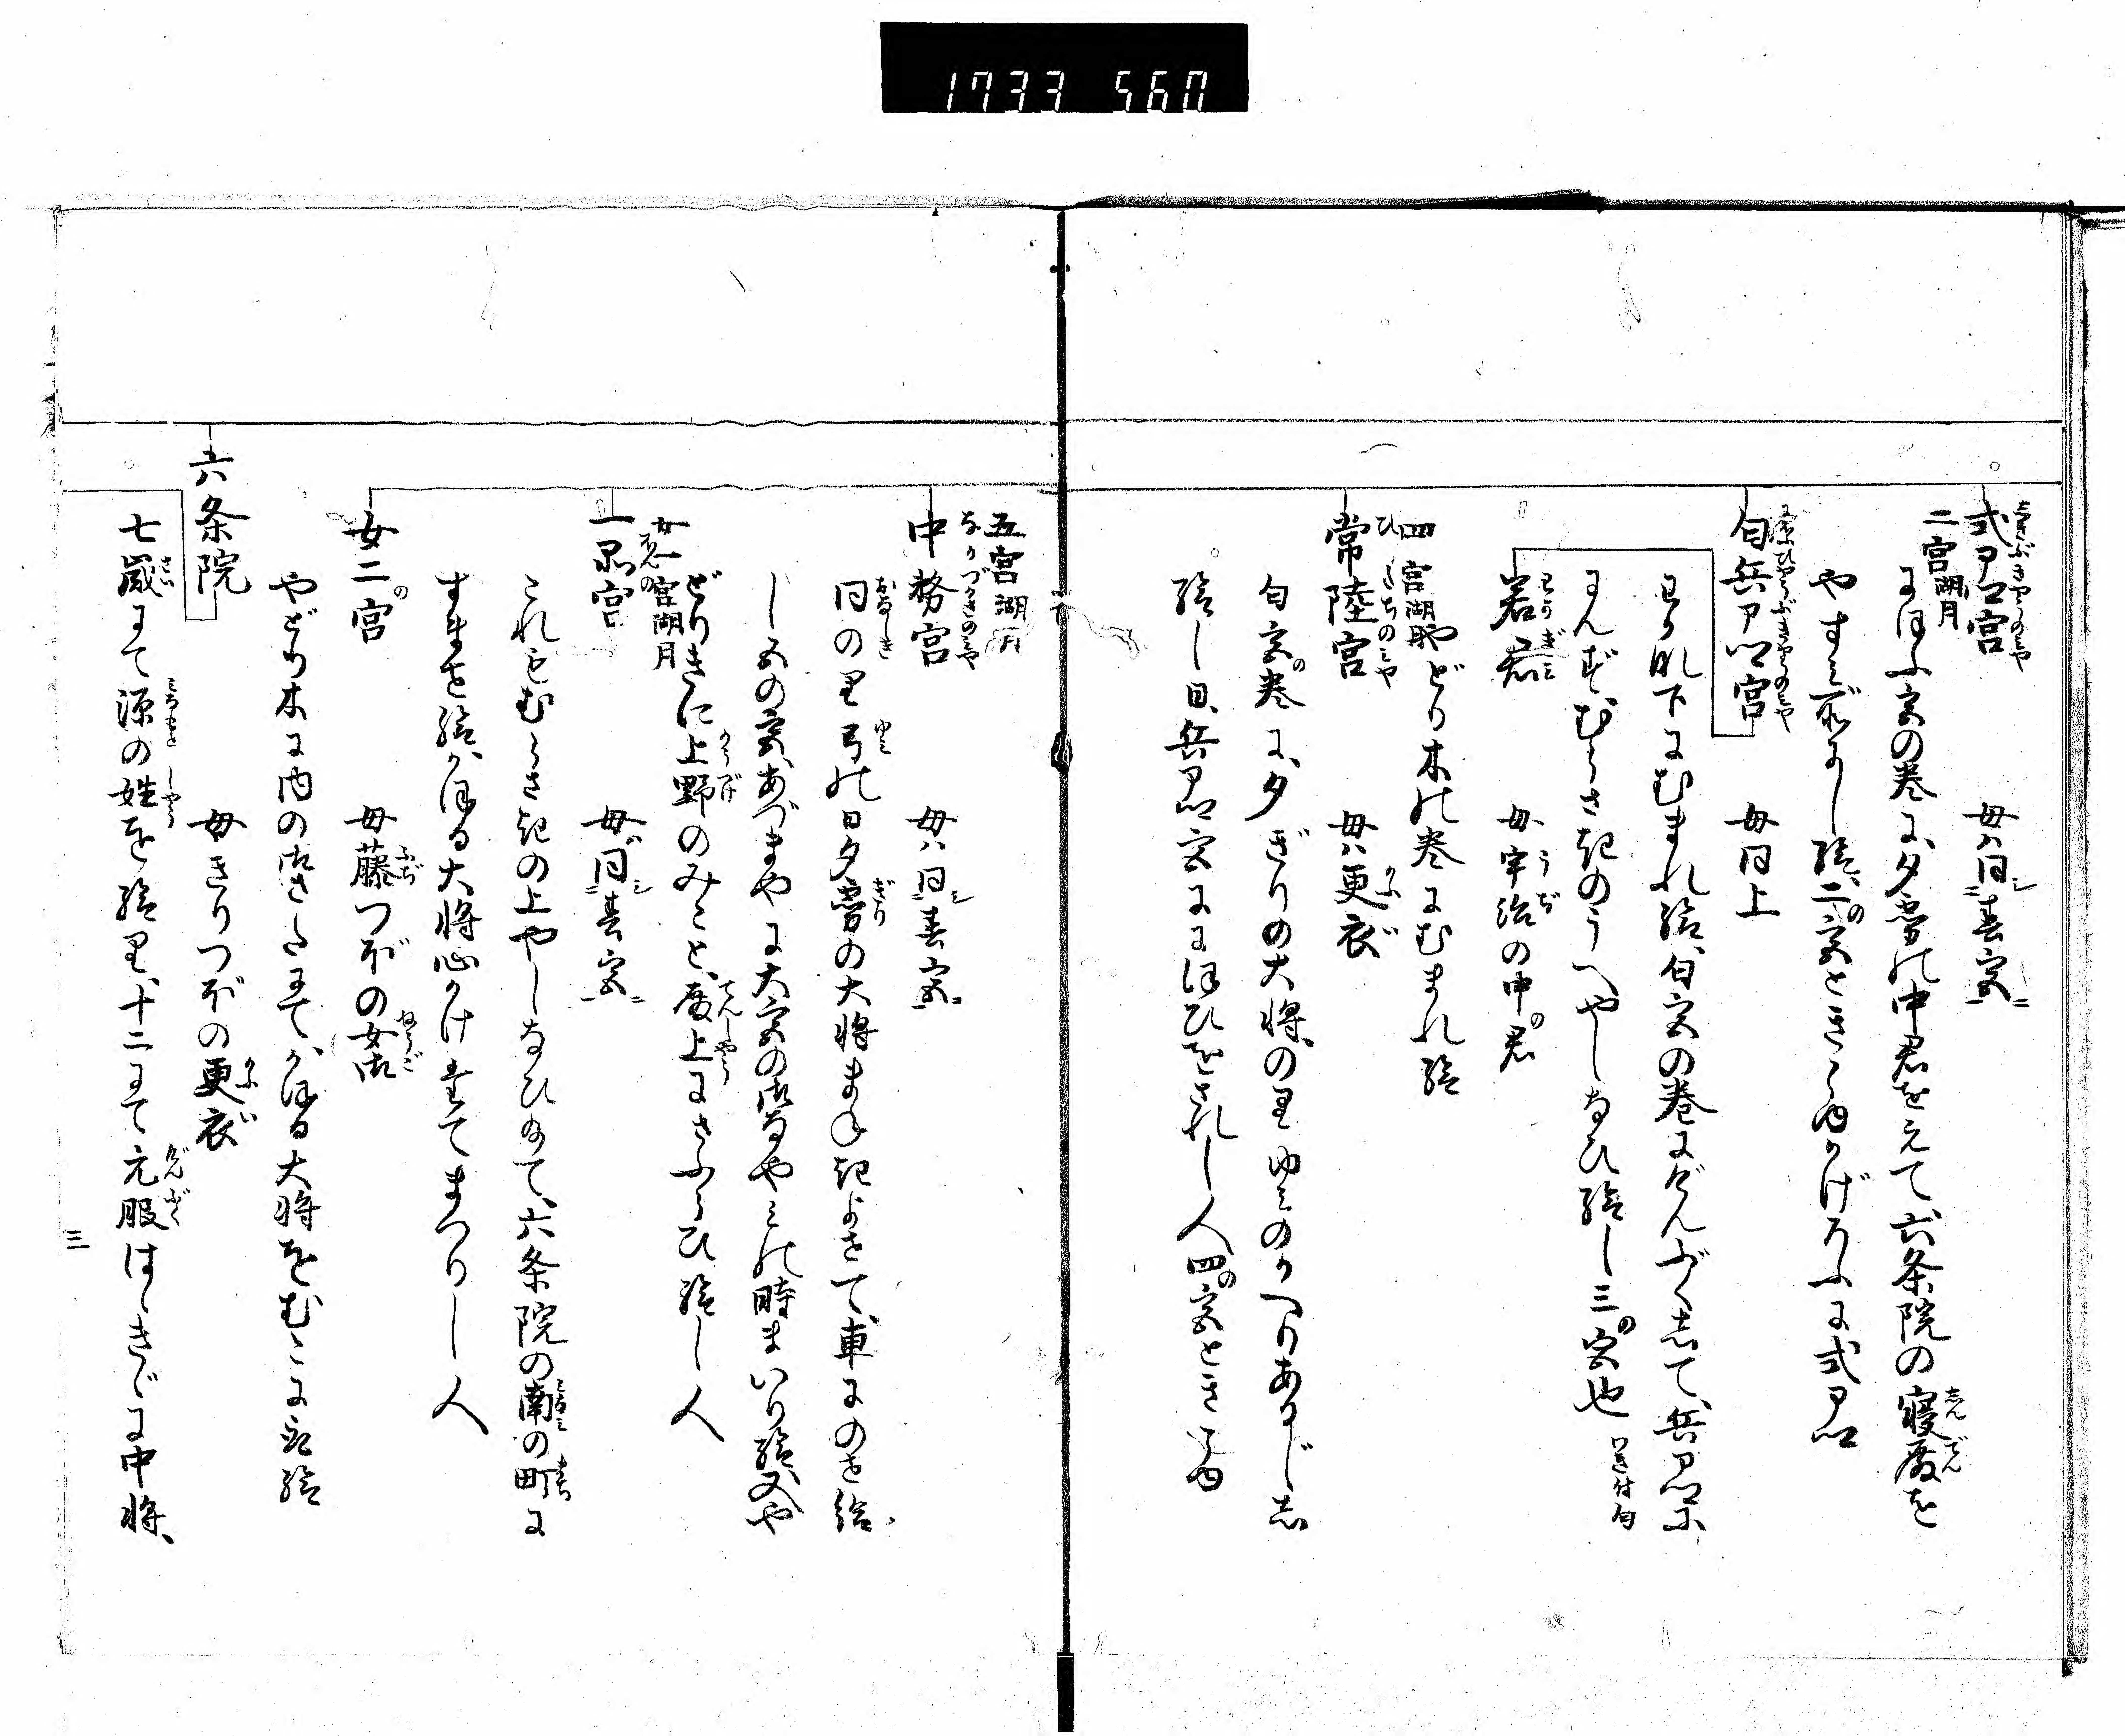 1733 560
式卩卿宮 母ハ同春宮
二宮湖月
にほふ宮の巻に、夕霧の中君をえて、六条院の寝殿を
やすみ所にし給、二の宮ときこゆかげろふに式卩卿
匂兵卩卿宮 母同上
わか菜下にむまれ給、匂宮の巻にげんぶくして、兵卩卿に
にんず、むらさきのうへやしなひ給し三の宮也
若君 母宇治の中の君
四宮湖月
やどり木の巻にむまれ給
常陸宮 母ハ更衣
匂宮の巻に、夕ぎりの大将の里ゆみのかへりあるじし
給し日、兵卩卿宮ににほひをされし人四の宮ときこゆ
五宮湖月
中務宮 母ハ同春宮
同の里弓の日夕霧の大将まねきよせて、車にのせ給、
し五の宮、あづまやに大宮の御なやみの時まいり給又や
どりきに上野のみこと、殿上にさふらひ給し人
女一宮湖月
一品宮 母ハ同春宮
これもむらさきの上やしなひ給て、六条院の南の町に
すませ給、かほる大将心かけ奉てまつりし人
女二の宮 母藤つぼの女御
やどり木に内の御さたにて、かほる大将をむこに取給
六条院 母きりつぼの更衣
七歳にて源の姓を給里、十二にて元服はゝきゞに中将、
三